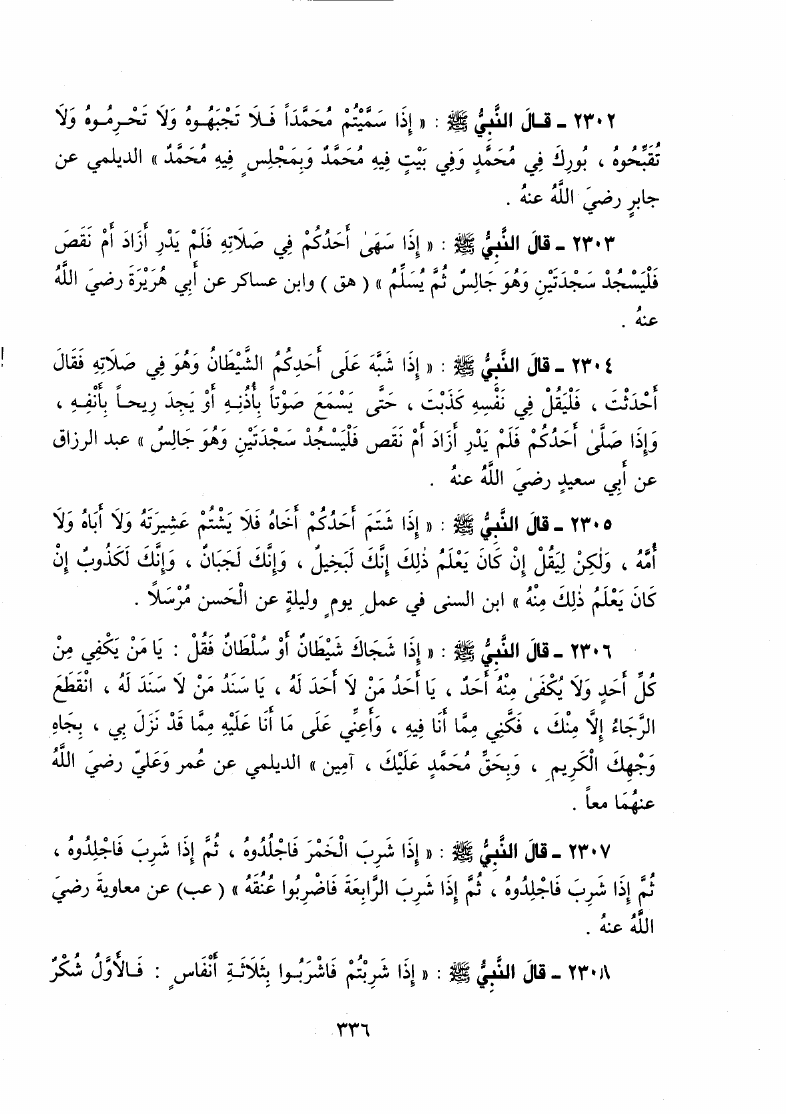 ٢٣٠٢ ـ قـالَ النَّبِيُّ ﷺ : « إِذَا سَمَّيْتُمْ مُحَمَّدَاً فَـلَا تَجْبَهُـوهُ وَلَا تَحْـرِمُـوهُ وَلَا
تُقَبِّحُوهُ ، بُورِكَ فِي مُحَمَّدٍ وَفِي بَيْتٍ فِيهِ مُحَمَّدٌ وَبِمَجْلِسٍ فِيهِ مُحَمَّدٌ » الديلمي عن
جابرٍ رضيَ اللَّهُ عنهُ .
٢٣٠٣ ـ قالَ النَّبِيُّ ﷺ : « إِذَا سَهَىٰ أَحَدُكُمْ فِي صَلَاتِهِ فَلَمْ يَدْرِ أَزَادَ أَمْ نَقَصَ
فَلْيَسْجُدْ سَجْدَتَيْنِ وَهُوَ جَالِسٌ ثُمَّ يُسَلِّمُ » ( هق ) وابن عساكر عن أَبي هُرَيْرَةَ رضيَ اللَّهُ
عنهُ .
٢٣٠٤ ـ قالَ النَّبِيُّ ﷺ : « إِذَا شَبَّهَ عَلَى أَحَدِكُمُ الشَّيْطَانُ وَهُوَ فِي صَلَاتِهِ فَقَالَ
أَحْدَثْتَ ، فَلْيَقُلْ فِي نَفْسِهِ كَذَبْتَ ، حَتَّى يَسْمَعَ صَوْتاً بِأُذُنِـهِ أَوْ يَجِدَ رِيحـاً بِأَنْفِـهِ ،
وَإِذَا صَلَّى أَحَدُكُمْ فَلَمْ يَدْرِ أَزَادَ أَمْ نَقَصَ فَلْيَسْجُدْ سَجْدَتَيْنِ وَهُوَ جَالِسٌ » عبد الرزاق
عن أَبي سعيدٍ رضيَ اللَّهُ عنهُ .
٢٣٠٥ ـ قالَ النَّبِيُّ ﷺ : « إِذَا شَتَمَ أَحَدُكُمْ أَخَاهُ فَلَا يَشْتُمْ عَشِيرَتَهُ وَلَا أَبَاهُ وَلَا
أُمَّهُ ، وَلٰكِنْ لِيَقُلْ إِنْ كَانَ يَعْلَمُ ذٰلِكَ إِنَّكَ لَبَخِيلٌ ، وَإِنَّكَ لَجَبَانٌ ، وَإِنَّكَ لَكَذُوبٌ إِنْ
كَانَ يَعْلَمُ ذٰلِكَ مِنْهُ » ابن السنى في عملِ يومٍ وليلةٍ عن الْحَسن مُرْسَلاً .
٢٣٠٦ ـ قالَ النَّبِيُّ ﷺ : « إِذَا شَجَاكَ شَيْطَانٌ أَوْ سُلْطَانٌ فَقُلْ : يَا مَنْ يَكْفِي مِنْ
كُلِّ أَحَدٍ وَلَا يُكْفَىٰ مِنْهُ أَحَدٌ ، يَا أَحَدُ مَنْ لَا أَحَدَ لَهُ ، يَا سَنَدُ مَنْ لَا سَنَدَ لَهُ ، انْقَطَعَ
الرَّجَاءُ إِلَّا مِنْكَ ، فَكَفِّنِي مِمَّا أَنَا فِيهِ ، وَأَعِنِّي عَلَى مَا أَنَا عَلَيْهِ مِمَّا قَدْ نَزَلَ بِي ، بِجَاهِ
وَجْهِكَ الْكَرِيمِ ، وَبِحَقِّ مُحَمَّدٍ عَلَيْكَ ، آمِين » الديلمي عن عُمر وَعَليّ رضيَ اللَّهُ
عنهُمَا معاً .
٢٣٠٧ ـ قالَ النَّبِيُّ ﷺ : « إِذَا شَرِبَ الْخَمْرَ فَاجْلُدُوهُ ، ثُمَّ إِذَا شَرِبَ فَاجْلِدُوهُ ،
ثُمَّ إِذَا شَرِبَ فَاجْلِدُوهُ ، ثُمَّ إِذَا شَرِبَ الرَّابِعَةَ فَاضْرِبُوا عُنُقَهُ » ( عب ) عن معاويةَ رضيَ
اللَّهُ عنهُ .
٢٣٠٨ ـ قالَ النَّبِيُّ ﷺ : « إِذَا شَرِبْتُمْ فَاشْرَبُـوا بِثَلَاثَـةِ أَنْفَاسٍ : فَـالْأَوَّلُ شُكْرٌ
٣٣٦